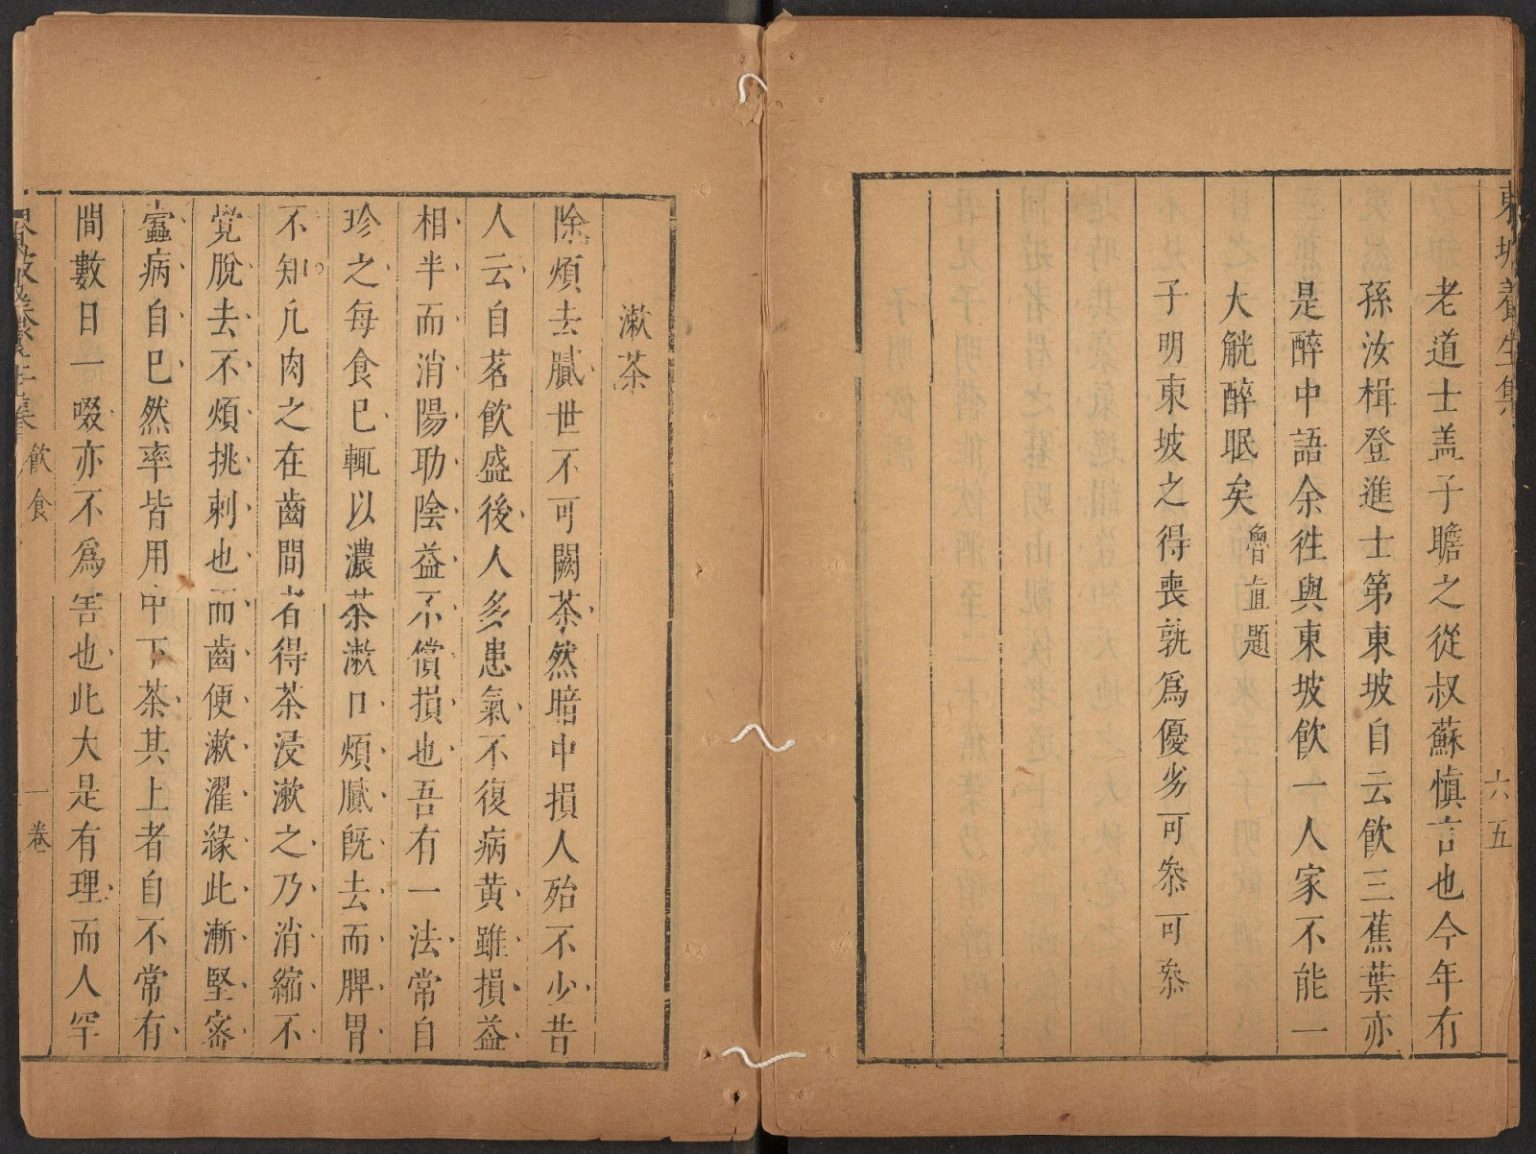 東坡養生集
六五
老道士盖子瞻之從叔蘇慎言也今年有
孫汝楫登進士第東坡自云飲三蕉葉亦
是醉中語余徃與東坡飲一人家不能一
大觥醉眠矣 魯直題
子明東坡之得喪孰爲優劣可叅可叅
漱茶
除煩去膩世不可闕茶然暗中損人殆不少昔
人云自茗飲盛後人多患氣不復病黄雖損益
相半而消陽助陰益不償損也吾有一法常自
珍之每食已輒以濃茶漱口煩膩旣去而脾胃
不知凢肉之在齒間者得茶浸漱之乃消縮不
覺脫去不煩挑刺也而齒便漱濯緣此漸堅密
蠧病自已然率皆用中下茶其上者自不常有
間數日一啜亦不爲害也此大是有理而人罕
東坡養生集 飲食 一 卷